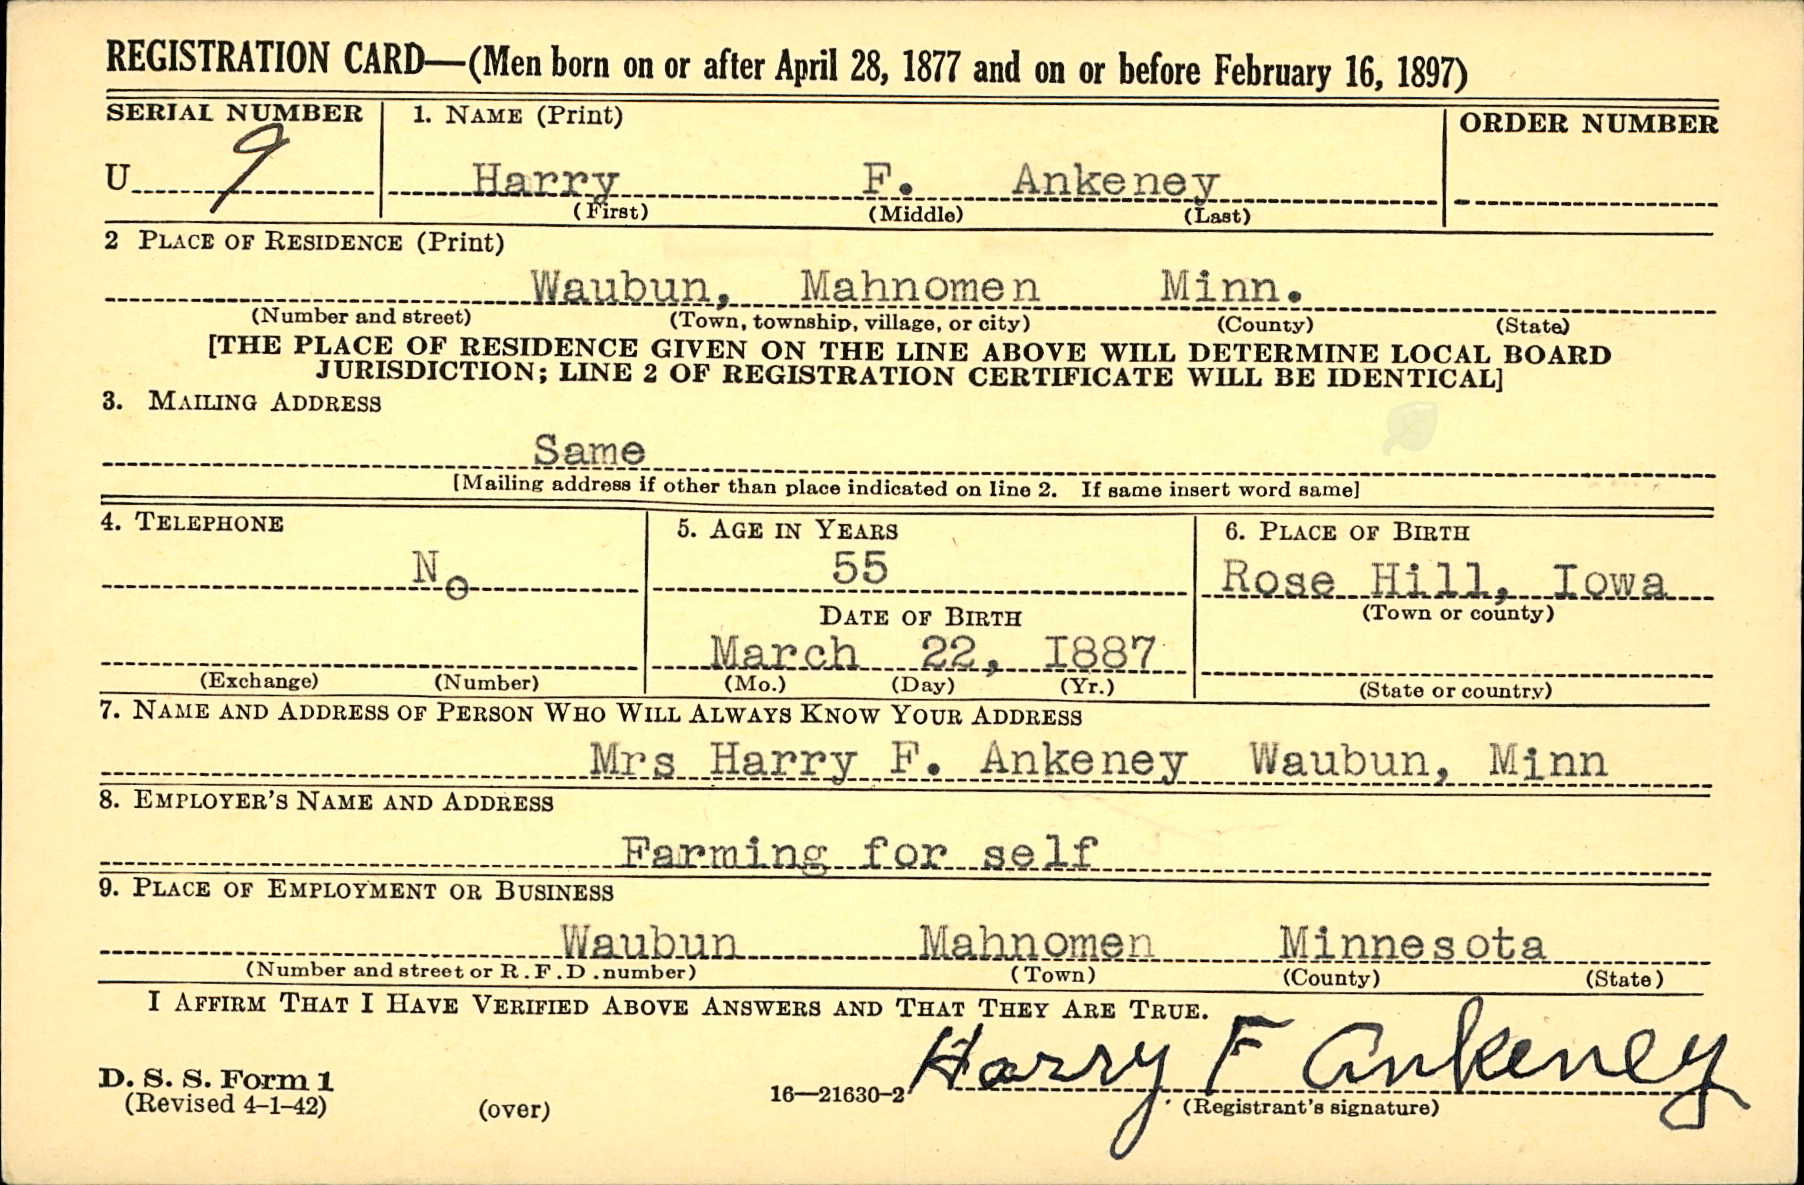 REGISTRATION CARD—(Men born on or after April 28, 1877 and on or before February 16, 1897)
SERIAL NUMBER 1. NAME (Print) ORDER NUMBER
U 9 Harry F. Ankeney
(First) (Middle) (Last)
2 PLACE OF RESIDENCE (Print)
Waubun, Mahnomen Minn.
(Number and street) (Town, township, village, or city) (County) (State)
[THE PLACE OF RESIDENCE GIVEN ON THE LINE ABOVE WILL DETERMINE LOCAL BOARD
JURISDICTION; LINE 2 OF REGISTRATION CERTIFICATE WILL BE IDENTICAL]
3. MAILING ADDRESS
Same
[Mailing address if other than place indicated on line 2. If same insert word same]
4. TELEPHONE 5. AGE IN YEARS 6. PLACE OF BIRTH
No 55 Rose Hill, Iowa
(Town or county)
DATE OF BIRTH
March 22, I887
(Exchange) (Number) (Mo.) (Day) (Yr.) (State or country)
7. NAME AND ADDRESS OF PERSON WHO WILL ALWAYS KNOW YOUR ADDRESS
Mrs Harry F. Ankeney Waubun, Minn
8. EMPLOYER'S NAME AND ADDRESS
Farming for self
9. PLACE OF EMPLOYMENT OR BUSINESS
Waubun Mahnomen Minnesota
(Number and street or R.F.D. number) (Town) (County) (State)
I AFFIRM THAT I HAVE VERIFIED ABOVE ANSWERS AND THAT THEY ARE TRUE.
Harry F Ankeney
D. S. S. Form 1
(Revised 4-1-42) (over) 16—21630-2 (Registrant's signature)